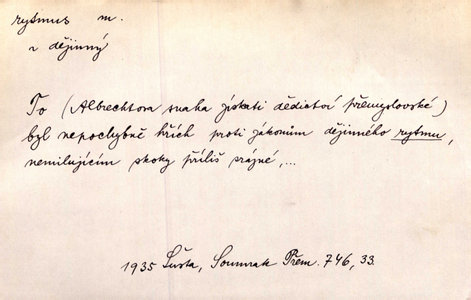 rytmus m.
r dějinný
To (Albrechtova snaha získati dědictví přemyslovské)
byl nepochybně hřích proti zákonům dějinného rytmu,
nemilujícím skoky příliš srázné,...
1935 Šusta, Soumrak Přem. 746, 33.